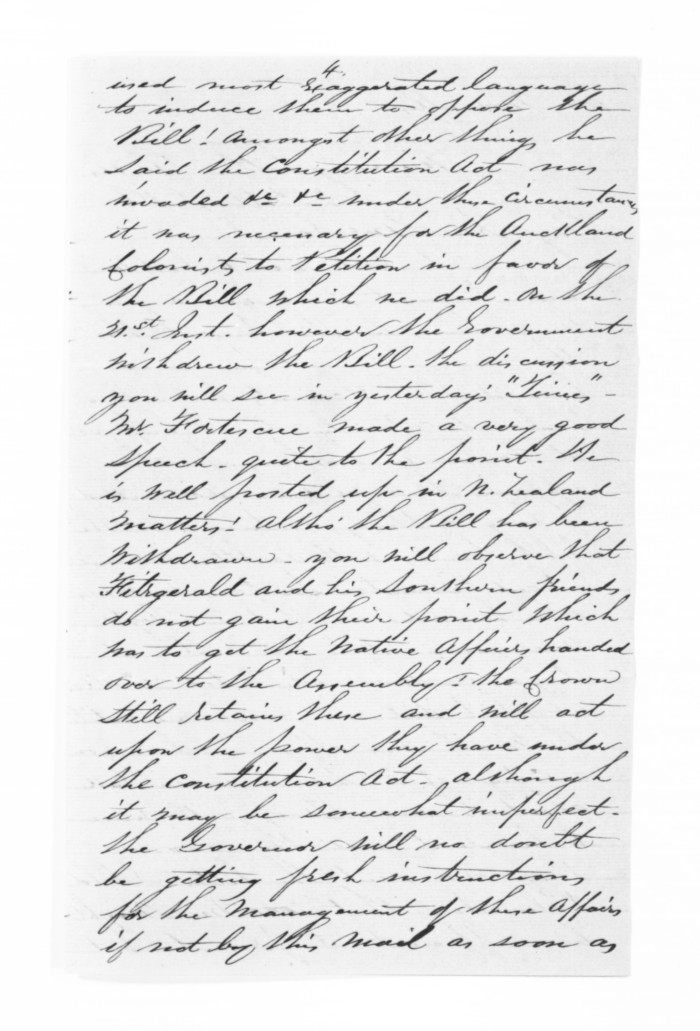 4.
used most exaggerated language
to induce them to oppose the
Bill! Amongst other things he
said the Constitution Act was
invaded &c &c under these circumstances
it was necessary for the Auckland
Colonists to Petition in favor of
the Bill which we did. On the
21.st Inst. however the Government
withdrew the Bill. the discussion
you will see in yesterday's "Times" -
Mr. Fortescue made a very good
speech - quite to the point. He
is well posted up in N. Zealand
matters! altho' the Bill has been
withdrawn - you will observe that
Fitzgerald and his Southern friends
do not gain their point which
was to get the Native Affairs handed
over to the Assembly! the Crown
still retains these and will act
upon the power they have under
the Constitution Act - although
it may be somewhat imperfect -
the Governor will no doubt
be getting fresh instructions
for the Management of these Affairs
if not by this Mail as soon as